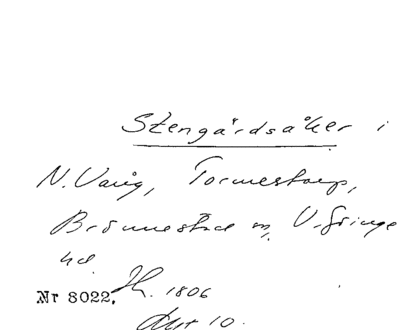 Stengårdsåker i
N. Vång, Tormestorp,
Brönnestad m, V. Göinge
hd.
Nr 8022. Jh. 1806
Akt 10.